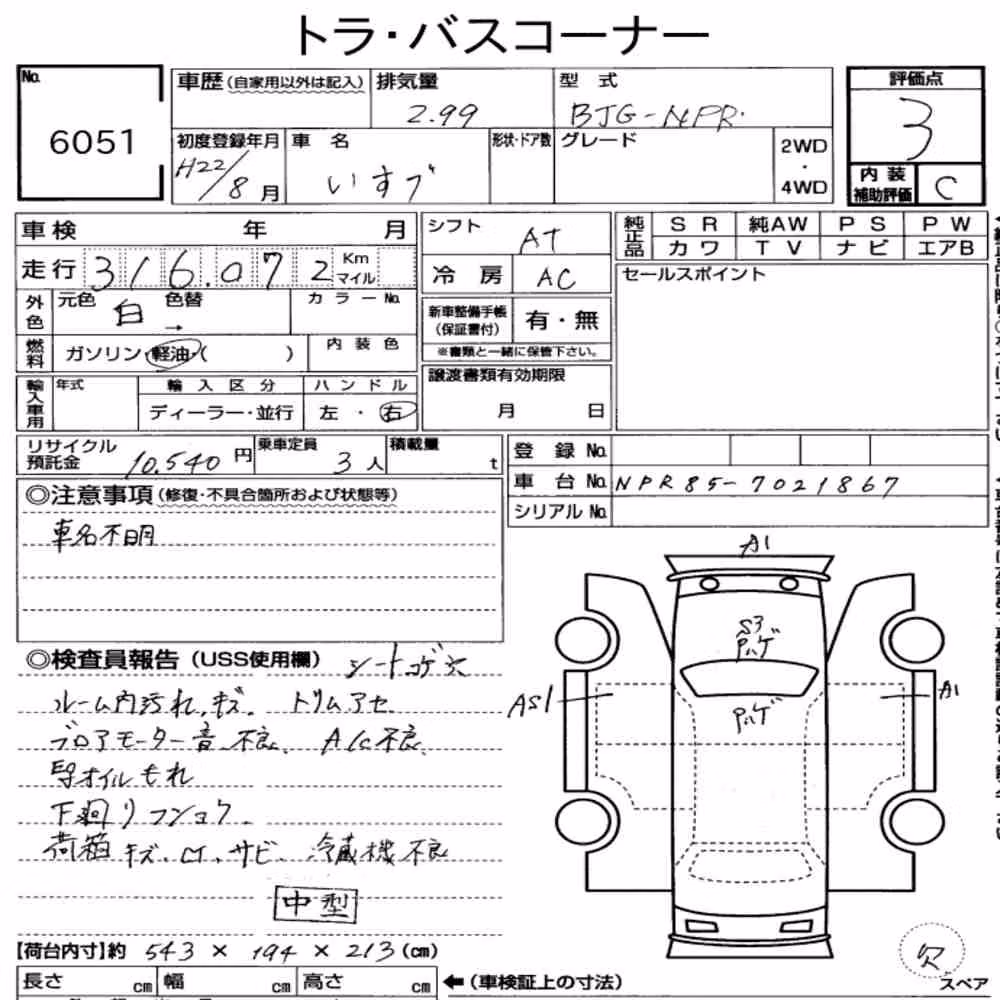 トラ・バスコーナー
No.
6051
車歴(自家用以外は記入)
排気量
2.99
型 式
BJG-NPR.
評価点
3
初度登録年月
H22/8月
車 名
いすゞ
形状・ドア数
グレード
2WD
・
4WD
内装
補助評価
C
車検 年 月
シフト
AT
純正品
SR 純AW PS PW
カワ TV ナビ エアB
走行 316.072 Km マイル
冷 房
AC
セールスポイント
外色
元色 白 色替 →
カラーNo.
新車整備手帳
(保証書付)
有・無
※書類と一緒に保管下さい。
燃料
ガソリン・軽油・( )
内装色
譲渡書類有効期限
月 日
輸入車用
年式
輸入区分
ディーラー・並行
ハンドル
左・右
リサイクル
預託金
10.540円
乗車定員
3人
積載量
t
登 録 No.
車 台 No. NPR85-7021867
シリアル No.
◎注意事項(修復・不具合箇所および状態等)
車名不明
◎検査員報告(USS使用欄) シートコゲ穴
ルーム内汚れ、キズ、 トリムアセ
ブロアモーター音不良、 A/C不良、
オイルもれ
下廻りフショク
荷箱キズ、凹、サビ、 冷蔵機不良
中型
A1
S3
ハゲ
ハゲ
AS1
A1
【荷台内寸】約 543 × 194 × 213 (cm)
欠
スペア
長さ cm 幅 cm 高さ cm ←(車検証上の寸法)